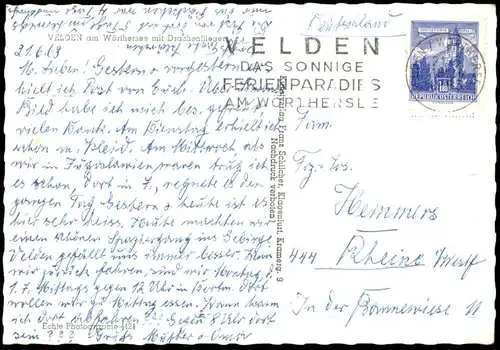 VELDEN am Wörthersee mit Drachenflieger
21.6.63
M. Lieben! Gestern u. vorgestern
ich Post von Euch. Über
Bild habe ich mich bes. gefreut,
vielen Dank. Am Dienstag erhielt ich
schon m. Kleid. Am Mittwoch als
wir in Jugoslawien waren trug ich
es schon, dort in J. regnete es den
ganzen Tag. Gestern u. heute ist es
hier sehr heiss. Heute machten wir
einen schönen Spaziergang ins Gebirge.
Velden gefällt uns immer besser. Wenn
wir zurück fahren, sind wir Montag
1.7. Mittags gegen 12 Uhr in Dortm. Dort
wollen wir zu Mittag essen. Wann kann
ich dort abfahren? Gegen 8 Uhr dort
sein ??? Grüße Mutter u. Oma
Echte Photographie
Franz Schilcher, Klagenfurt, Kramerg. 9
Nachdruck verboten!
Deutschland
VELDEN
DAS SONNIGE
FERIENPARADIES
AM WÖRTHERSEE
REPUBLIK ÖSTERREICH
Fam.
Frz.-Jos.
Hemmers
444 Rheine/Westf
In der Bannewiese 11